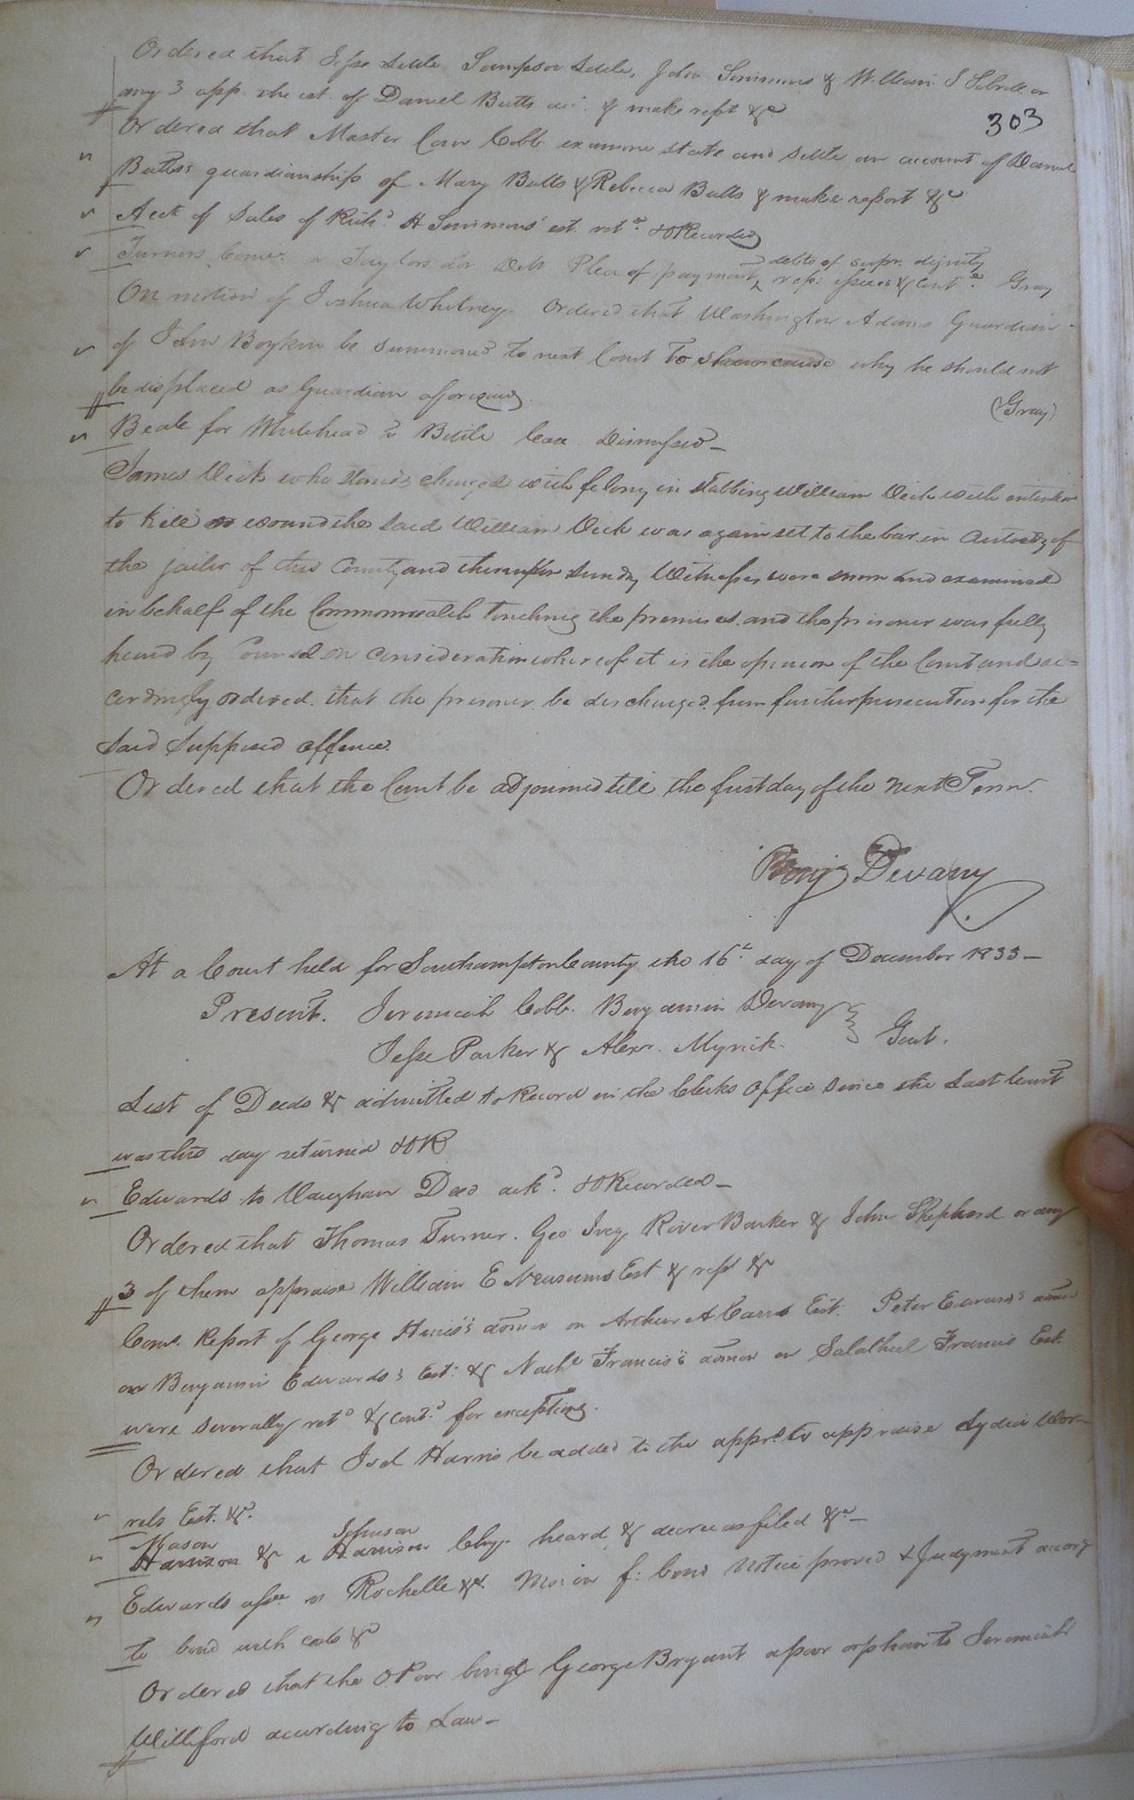 Ordered that Jesse Little Sampson Little, John Simmons & William S
any 3 app. the est. of Daniel Butts dec. & make rept &c
303
Ordered that Master Com Cobb examine state and settle an account of Daniel
Butts's guardianship of Mary Butts & Rebecca Butts & make report &c
Acct of Sales of Richd H Simmons' est. retd. & ORecorded
Turners v Taylors Debt Plea of payment, debts of supr. dignity
repl: issues & contd. Gray
On motion of Joshua Whitney. Ordered that Washington Adams Guardian
of John Boykin be summoned to next Court to shew cause why he should not
be displaced as Guardian aforesaid.
(Gray)
Beale for Whitehead v Battle Casa Dismissed
James Vick who stands charged with felony in stabbing William Vick with intention
to kill or wound the said William Vick was again set to the bar in custody of
the jailor of this County and thereupon sundry Witnesses were sworn and examined
in behalf of the Commonwealth touching the premises. and the prisoner was fully
heard by Counsel on consideration whereof it is the opinion of the Court and ac=
cordingly ordered. that the prisoner be discharged from further prosecution for the
said supposed offence.
Ordered that the Court be adjourned till the first day of the next Term.
Benj Devany
At a Court held for Southampton County the 16th day of December 1833
Present. Jeremiah Cobb. Benjamin Devany
Jesse Parker & Alexr. Myrick. Gent.
List of Deeds & admitted to Record in the Clerks Office since the last Court
was this day returned & OR
Edwards to Vaughan Deed ackd. & ORecorded
Ordered that Thomas Turner. Geo Ivey River Barker & John Shepherd or any
3 of them appraise William E Newsums Est & rept &c
Comr. Report of George Harris's admon on Arthur A Carrs Est. Peter Edwards's admon
on Benjamin Edwards's Est: & Nathl Francis's admon on Salathiel Francis Est
were severally retd & contd. for exceptions.
Ordered that Joel Harris be added to the apprs. to appraise Lydia Wor-
rels Est. &c.
Mason Johnson
Harrison & v Harrison Chy. heard & decree as filed &c
Edwards assee v Rochelle &c. Mo: on f: bond Notice proved & Judgment accorg
to bond with costs &c
Ordered that the O Poor bind George Bryant a poor orphan to Jeremiah
Williford according to Law